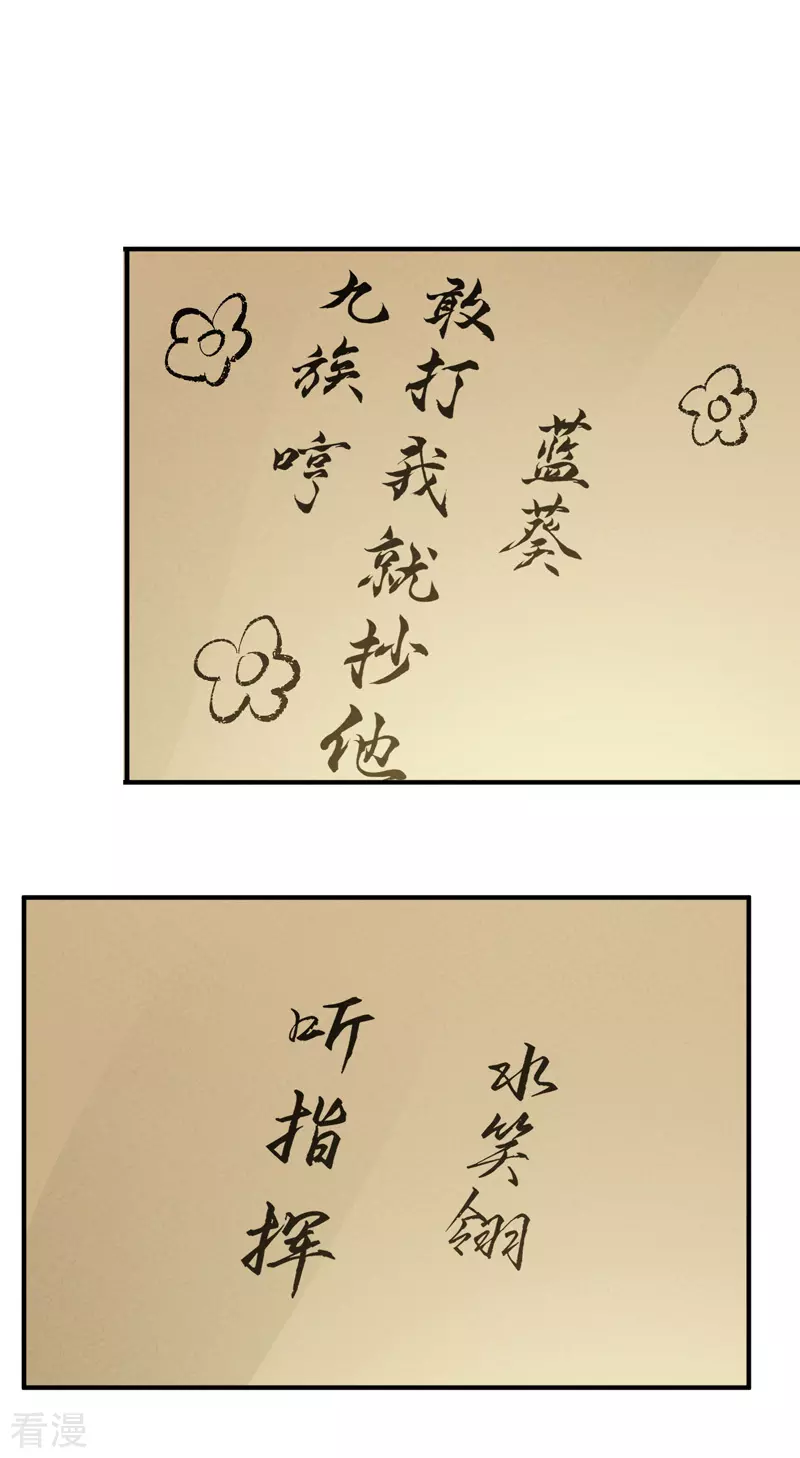 蓝葵
敢打我就抄他
九族哼
水笑翎
听指挥
看漫